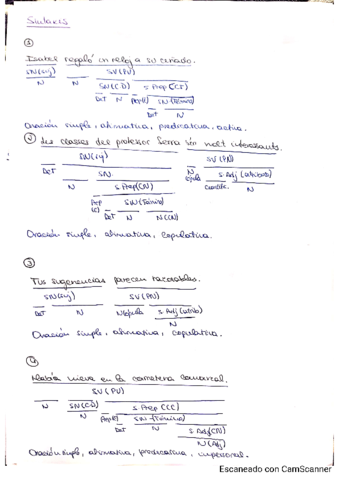 Sintaxis
①
Isabel regaló un reloj a su criado.
SN(suj) SV(PV)
N N SN(CD) S Prep(CI)
Det N Prep(E) SN(Término)
Det N
Oración simple, afirmativa, predicativa, activa.
② Les classes del professor Serra són molt interessants.
SN(suj) SV(PN)
Det SN N S Adj (atributo)
N S Prep(CN) cópula Cuantific. N
Prep SN(Término)
(E) Det N N(CN)
Oración simple, afirmativa, copulativa.
③
Tus sugerencias parecen razonables.
SN(suj) SV(PN)
Det N N(cópula) S Adj(atrib)
N
Oración simple, afirmativa, copulativa.
④
Había nieve en la carretera comarcal.
SV(PV)
N SN(CD) S Prep (CC)
N Prep(E) SN(Término)
Det N S Adj(CN)
N(Adj)
Oración simple, afirmativa, predicativa, impersonal.
Escaneado con CamScanner